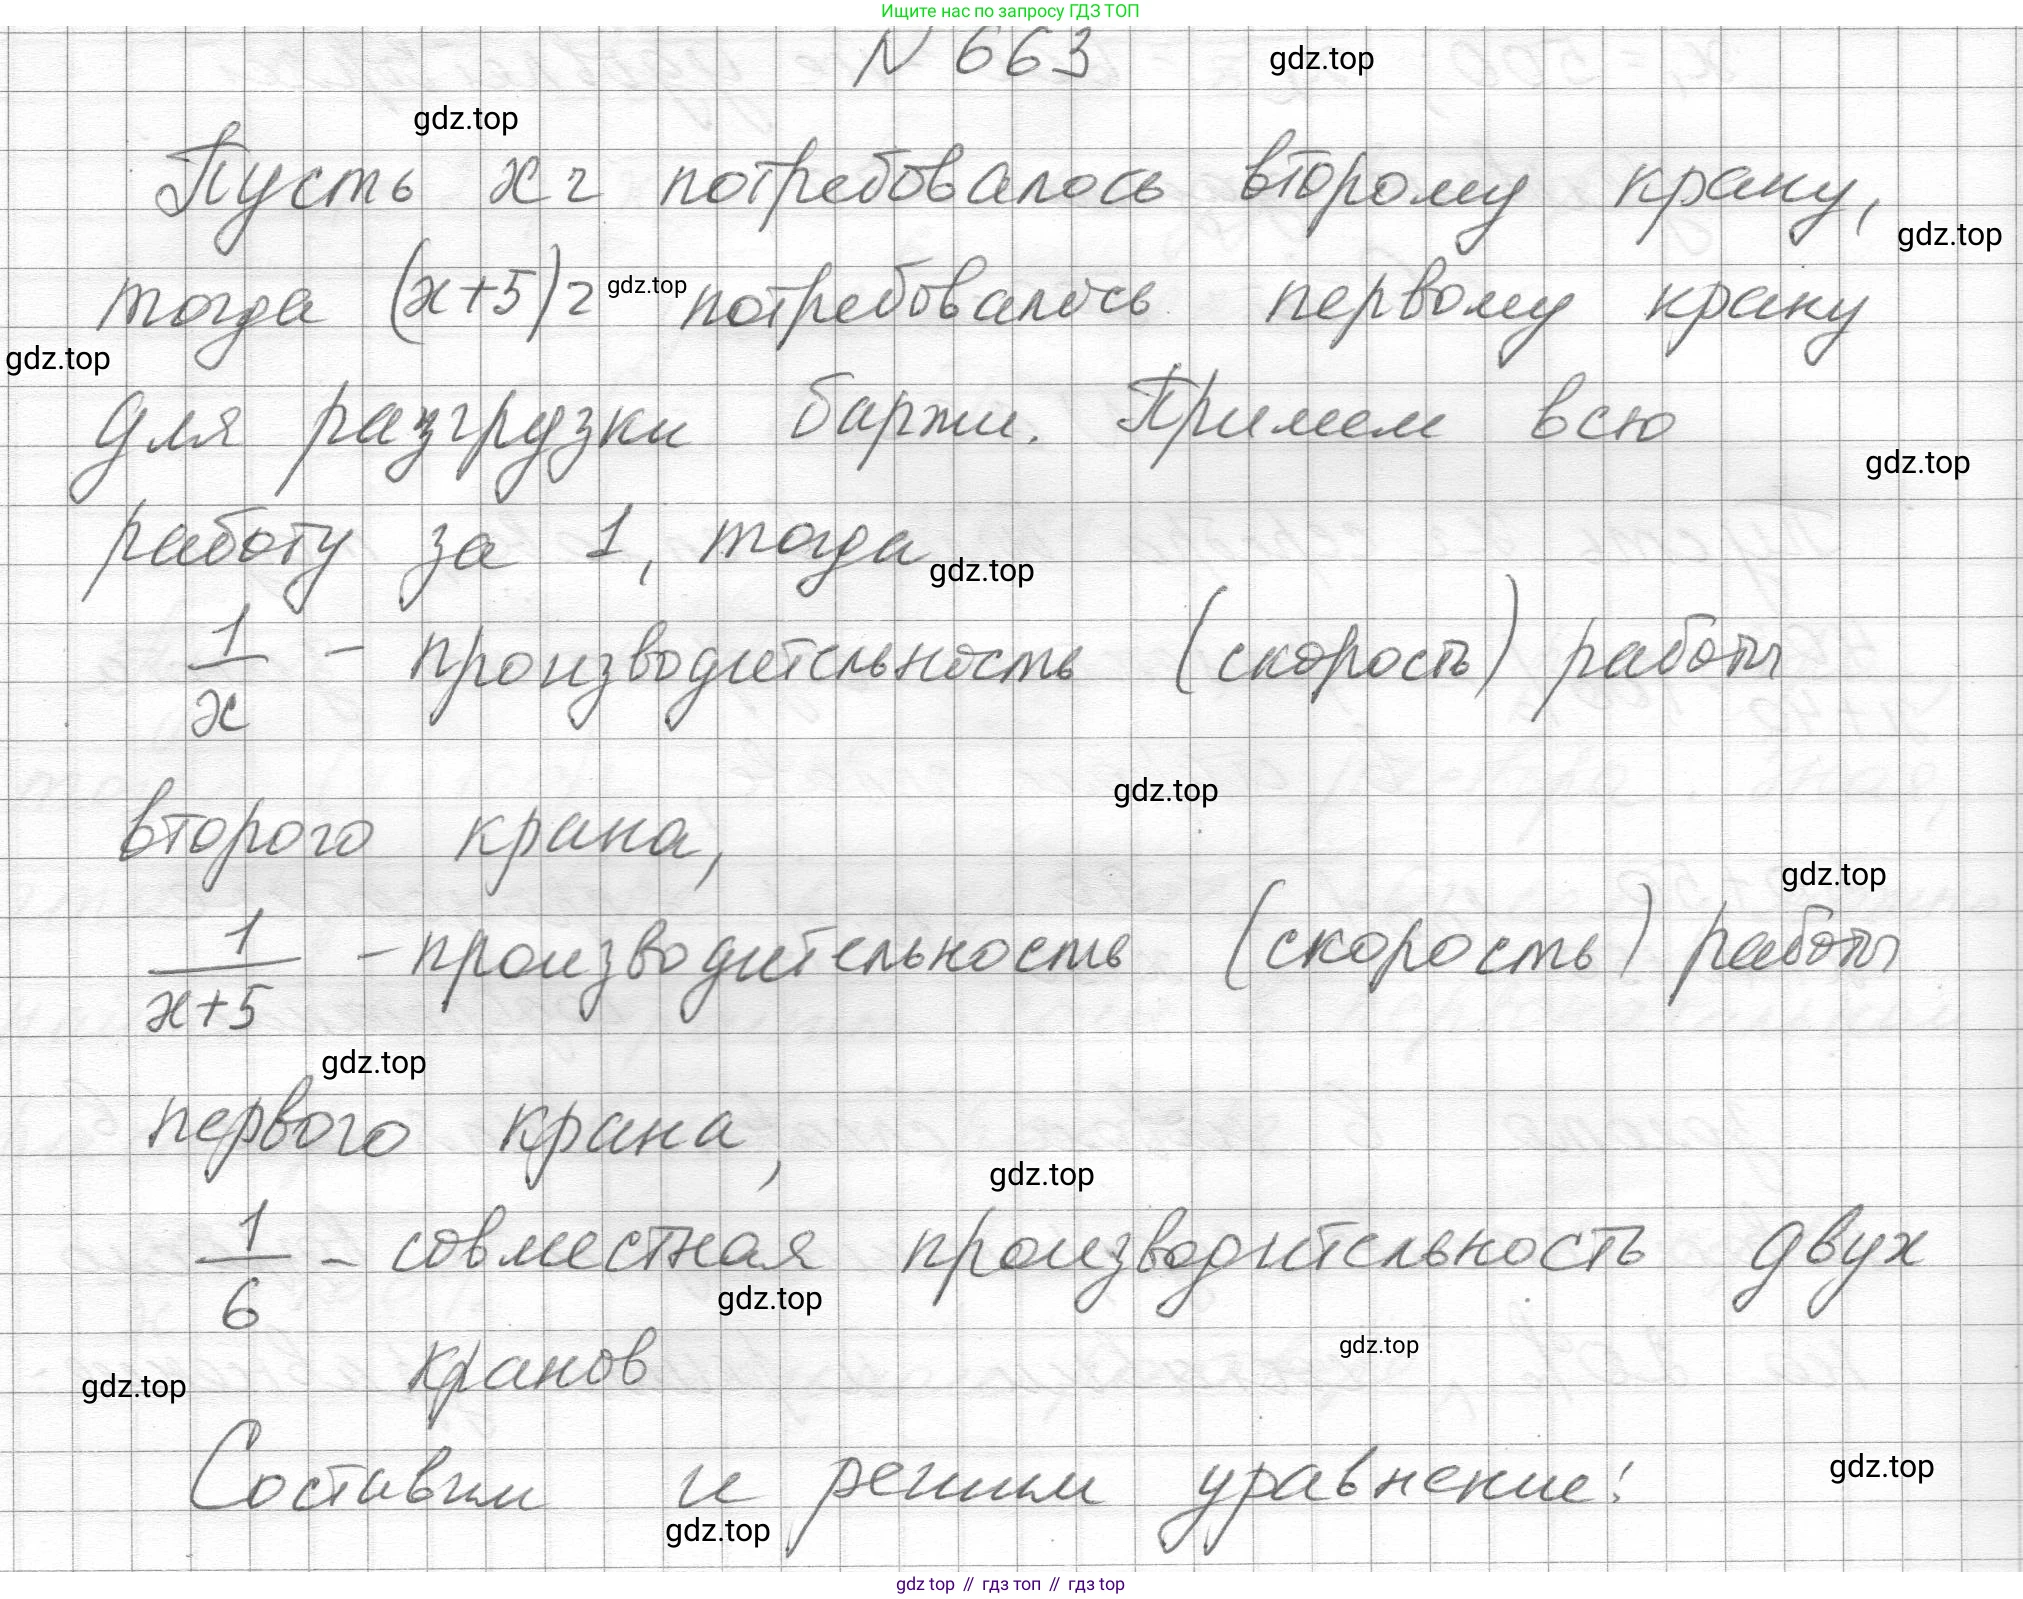 Ищите нас по запросу ГДЗ ТОП
N 663
gdz.top
gdz.top
Пусть x ч потребовалось второму крану,
gdz.top
тогда (x+5) ч потребовалось первому крану
gdz.top
gdz.top
для разгрузки баржи. Примем всю
gdz.top
работу за 1, тогда
gdz.top
1/x - производительность (скорость) работы
gdz.top
второго крана,
gdz.top
1/(x+5) - производительность (скорость) работы
gdz.top
первого крана,
gdz.top
1/6 - совместная производительность двух
gdz.top
gdz.top
кранов
gdz.top
Составим и решим уравнение:
gdz.top
gdz.top
gdz top // гдз топ // гдз top